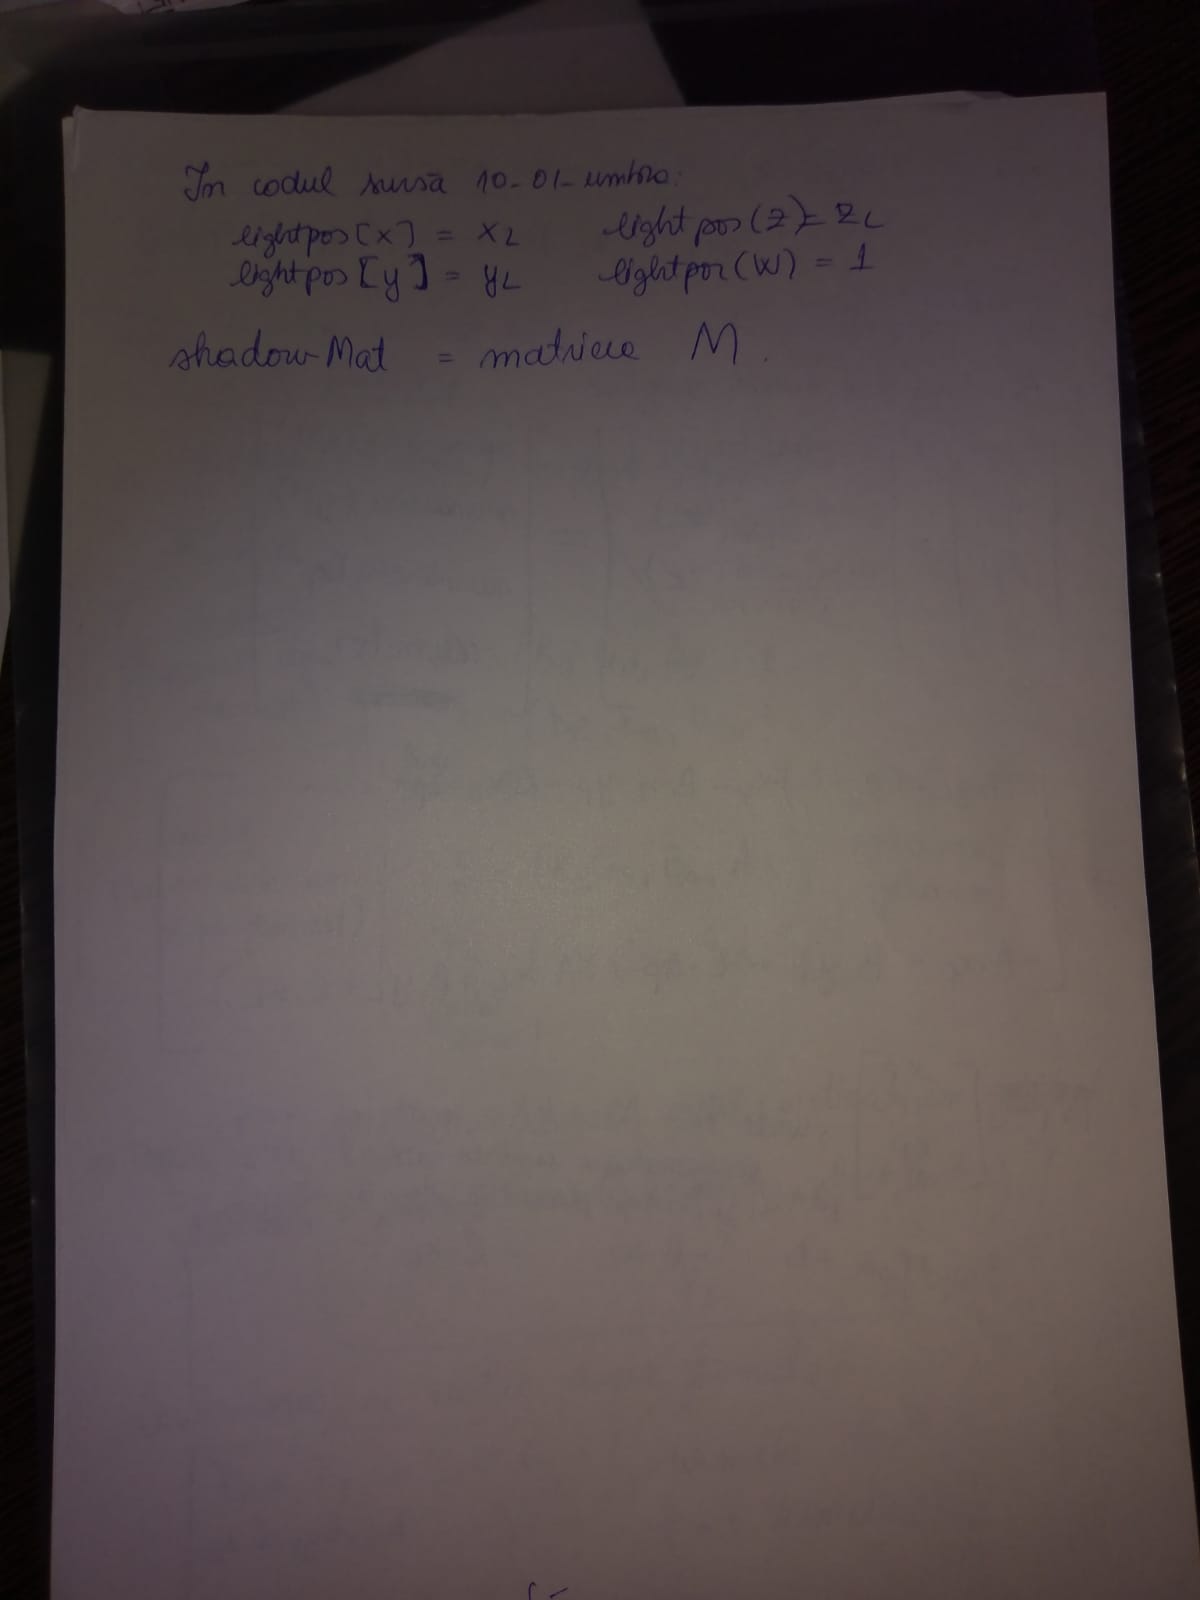 In codul sursă 10-01-umbra:
lightpos[x] = xL lightpos(z) = zL
lightpos[y] = yL lightpos(w) = 1
shadowMat = matricea M.